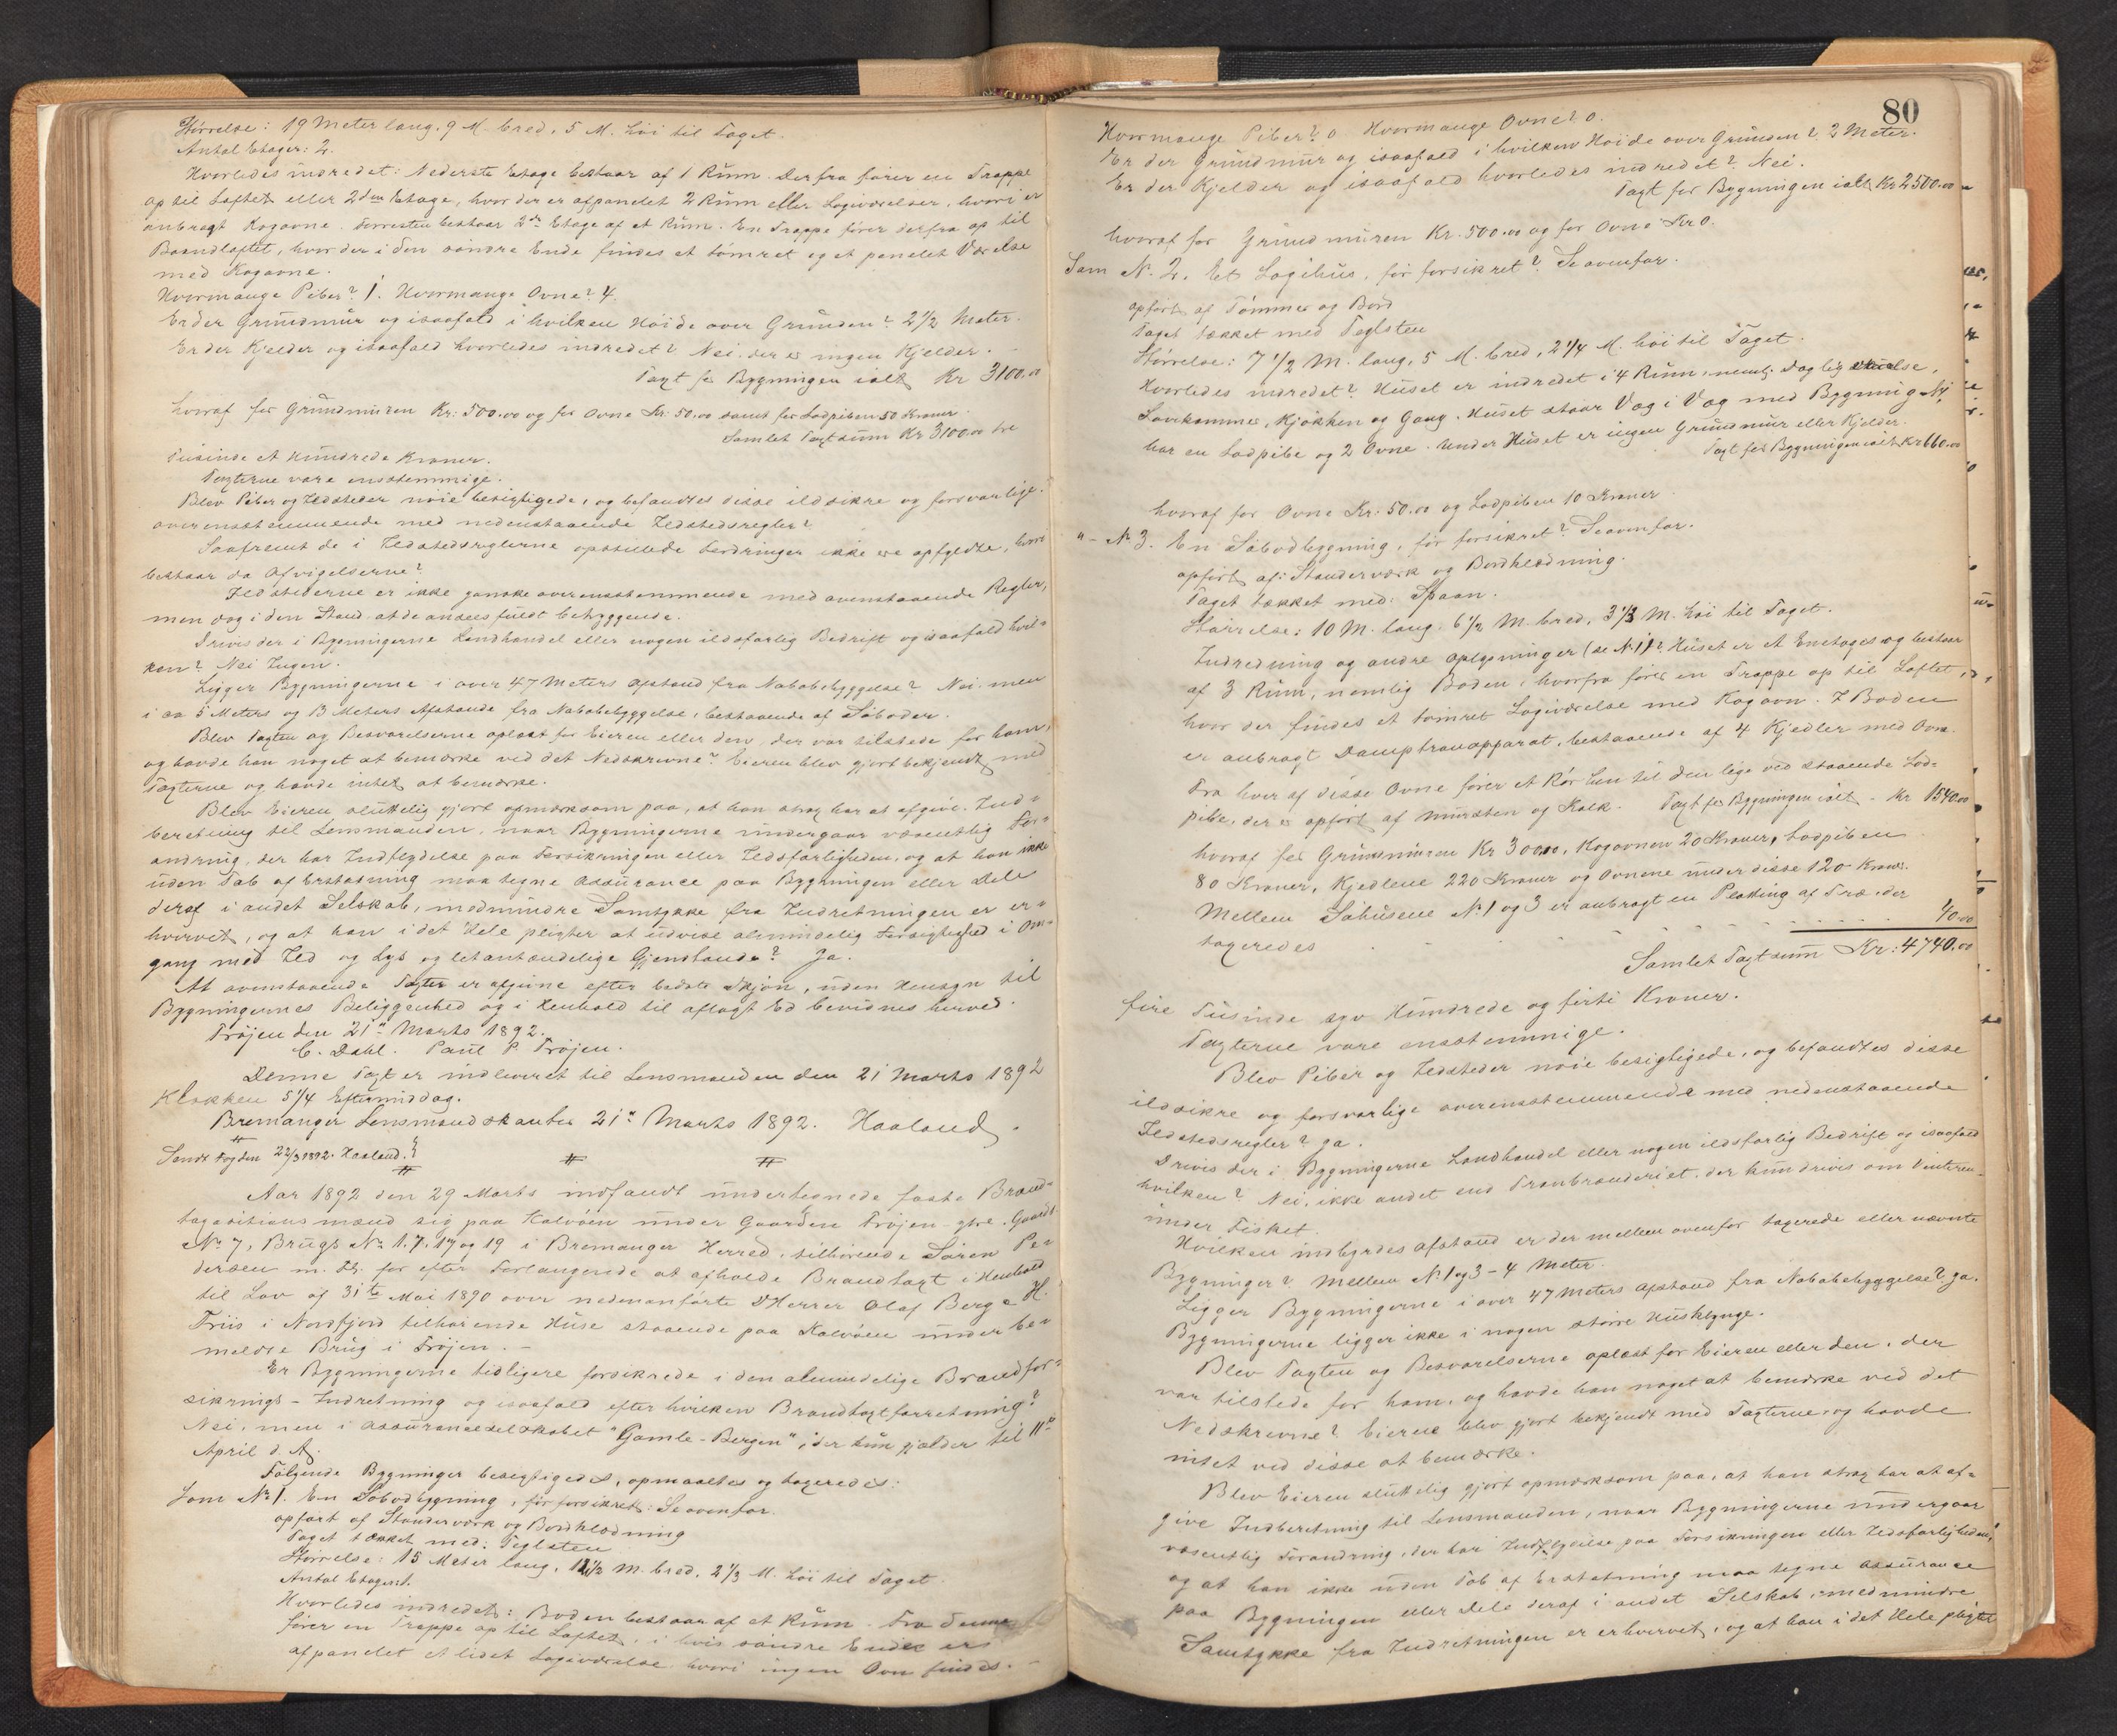 Størrelse: 19 Meter lang, 9 M. bred, 5 M. høi til Taget.
Antal Etager: 2.
Hvorledes indredet: Nederste Etage bestaar af 1 Rum. Derfra fører en Trappe
op til Loftet eller 2den Etage, hvor der er afpanelet 2 Rum eller Logiværelser, hvori er
anbragt Kogovne. Forresten bestaar 2den Etage af et Rum. En Trappe fører derfra op til
Baandloftet, hvor der i den søndre Ende findes et tømret og et panelet Værelse
med Kogovne.
Hvormange Piber? 1. Hvormange Ovne? 4.
Er der Grundmur og isaafald i hvilken Høide over Grunden? 2 1/2 Meter.
Er der Kjelder og isaafald hvorledes indredet? Nei. der er ingen Kjelder.
Taxt for Bygningen ialt Kr 3100.00
hvoraf for Grundmuren Kr: 500.00 og for Ovne Kr: 50.00 samt for Lodpiben 50 Kroner.
Samlet Taxtsum Kr 3100.00 tre
Tusinde et Hundrede Kroner.
Taxterne vare enstemmige.
Blev Piber og Ildsteder nøie besigtigede, og befandtes disse ildsikre og forsvarlige
overensstemmende med nedenstaaende Ildstedsregler?
Saafremt de i Ildstedsreglerne opstillede Fordringer ikke ere opfyldte, hvori
bestaar da Afvigelserne?
Ildstederne er ikke ganske overensstemmende med ovenstaaende Regler,
men dog i den Stand at de ansees fuldt betryggende.
Drives der i Bygningerne Landhandel eller nogen ildsfarlig Bedrift og isaafald hvil-
ken? Nei Ingen.
Ligger Bygningerne i over 47 Meters Afstand fra Nabobebyggelse? Nei. men
i ca 5 Meters og 13 Meters Afstande fra Nabobebyggelse, bestaaende af Søboder.
Blev Taxten og Besvarelserne oplæst for Eieren eller den, der var tilstede for ham,
og havde han noget at bemærke ved det Nedskrevne? Eieren blev gjort bekjendt med
Taxterne og havde intet at bemærke.
Blev Eieren sluttelig gjort opmærksom paa, at han strax har at afgive Ind-
beretning til Lensmanden, naar Bygningerne undergaar væsentlig For-
andring, der har Indflydelse paa Forsikringen eller Ildsfarligheden, og at han ikke
uden Tab af Erstatning maa tegne Assurance paa Bygningen eller Dele
deraf i andet Selskab, medmindre Samtykke fra Indretningen er er-
hvervet, og at han i det Hele pligter at udvise almindelig Forsigtighed i Om-
gang med Ild og Lys og letantændelige Gjenstande? Ja.
At ovenstaaende Taxter er afgivne efter bedste Skjøn, uden Hensyn til
Bygningernes Beliggenhed og i Henhold til aflagt Ed bevidnes herved.
Frøjen den 21de Marts 1892.
C. Dahl. Paul P. Frøjen.
Denne Taxt er indleveret til Lensmanden den 21 Marts 1892
Klokken 5 1/4 Eftermiddag.
Bremanger Lensmandskontor 21de Marts 1892. Haaland.
Sendt Fogden 22/3 1892. Haaland.
Aar 1892 den 29 Marts indfandt undertegnede faste Brand-
taxationsmænd sig paa Kalvøen under Gaarden Frøjen-ytre, Gaards
No 7, Brugs No 1, 7, 17 og 19 i Bremanger Herred, tilhørende Søren Pe-
dersen m. Fl. for efter Forlangende at afholde Brandtaxt i Henhold
til Lov af 31te Mai 1890 over nedenanførte D'Herrer Olaf Berg & H.
Friis i Nordfjord tilhørende Huse staaende paa Kalvøen under be-
meldte Brug i Frøjen. -
Er Bygningerne tidligere forsikrede i den almindelige Brandfor-
sikrings-Indretning og isaafald efter hvilken Brandtaxtforretning?
Nei, men i Assuranceselskabet "Gamle-Bergen", der kun gjælder til 11te
April d. A.
Følgende Bygninger besigtigedes, opmaaltes og taxeredes:
Som No 1. En Søbodbygning, før forsikret: Se ovenfor.
opført af Standerværk og Bordklædning
Taget tækket med: Teglsten
Størrelse: 15 Meter lang, 1/3 M. bred, 2 1/3 M. høi til Taget.
Antal Etager: 1.
Hvorledes indredet: Boden bestaar af et Rum. Fra denne
fører en Trappe op til Loftet, i hvis søndre Ende er
afpanelet et lidet Logiværelse hvori ingen Ovn findes. -
80
Hvormange Piber? 0. Hvormange Ovne? 0.
Er der Grundmur og isaafald i hvilken Høide over Grunden? 2 Meter.
Er der Kjelder og isaafald hvorledes indredet? Nei.
Taxt for Bygningen ialt Kr 2500.00
hvoraf for Grundmuren Kr. 500.00 og for Ovne Kr 0.
Som No. 2. Et Logihus, før forsikret? Se ovenfor.
opført af Tømmer og Bord
Taget tækket med Teglsten
Størrelse: 7 1/2 M. lang, 5 M. bred, 2 1/4 M. høi til Taget.
Hvorledes indredet? Huset er indredet i 4 Rum, nemlig Daglig,
Sovekammer, Kjøkken og Gang. Huset staar Væg i Væg med Bygning No 1,
har en Lodpibe og 2 Ovne. Under Huset er ingen Grundmur eller Kjelder.
Taxt for Bygningen ialt Kr 660.00
hvoraf for Ovne Kr: 50.00 og Lodpiben 10 Kroner.
"- No 3. En Søbodbygning, før forsikret? Se ovenfor.
opført af: Standerværk og Bordklædning.
Taget tækket med: Spaan.
Størrelse: 10 M. lang. 6 1/2 M. bred, 3 1/3 M. høi til Taget.
Indredning og andre Oplysninger (se No 1)? Huset er et Enetages og bestaar
af 3 Rum, nemlig Boden, hvorfra fører en Trappe op til Loftet,
hvor der findes et tømret Logiværelse med Kogovn. I Boden
er anbragt Damptranapparat, bestaaende af 4 Kjedler med Ovne.
Fra hver af disse Ovne fører et Rør hen til den lige ved staaende Lod-
pibe, der er opført af Mursten og Kalk. Taxt for Bygningen ialt - Kr 1540.00
hvoraf for Grundmuren Kr 300.00, Kogovnen 20 Kroner, Lodpiben
80 Kroner, Kjedlene 220 Kroner og Ovnene under disse 120 Kroner.
Mellem Søhusene No 1 og 3 er anbragt en Platting af Træ, der
taxeredes . . . . . . . . . 40.00
Samlet Taxtsum Kr: 4740.00
fire Tusinde syv Hundrede og førti Kroner.
Taxterne vare enstemmige.
Blev Piber og Ildsteder nøie besigtigede, og befandtes disse
ildsikre og forsvarlige overensstemmende med nedenstaaende
Ildstedsregler? ja.
Drives der i Bygningerne Landhandel eller nogen ildsfarlig Bedrift og isaafald
hvilken? Nei, ikke andet end Tranbrænderiet, der kun drives om Vinteren
under Fisket.
Hvilken indbyrdes Afstand er der mellem ovenfor taxerede eller nævnte
Bygninger? Mellem No 1 og 3 - 4 Meter.
Ligger Bygningerne i over 47 Meters Afstand fra Nabobebyggelse? ja.
Bygningerne ligger ikke i nogen større Husklynge.
Blev Taxten og Besvarelserne oplæst for Eieren eller den, der
var tilstede for ham, og havde han noget at bemærke ved det
Nedskrevne? Eierne blev gjort bekjendt med Taxterne, og havde
intet ved disse at bemærke.
Blev Eieren sluttelig gjort opmærksom paa, at han strax har at af-
give Indberetning til Lensmanden, naar Bygningerne undergaar
væsentlig Forandring, der har Indflydelse paa Forsikringen eller Ildsfarligheden,
og at han ikke uden Tab af Erstatning maa tegne Assurance
paa Bygningen eller Dele deraf i andet Selskab, medmindre
Samtykke fra Indretningen er erhvervet, og at han i det Hele pligter